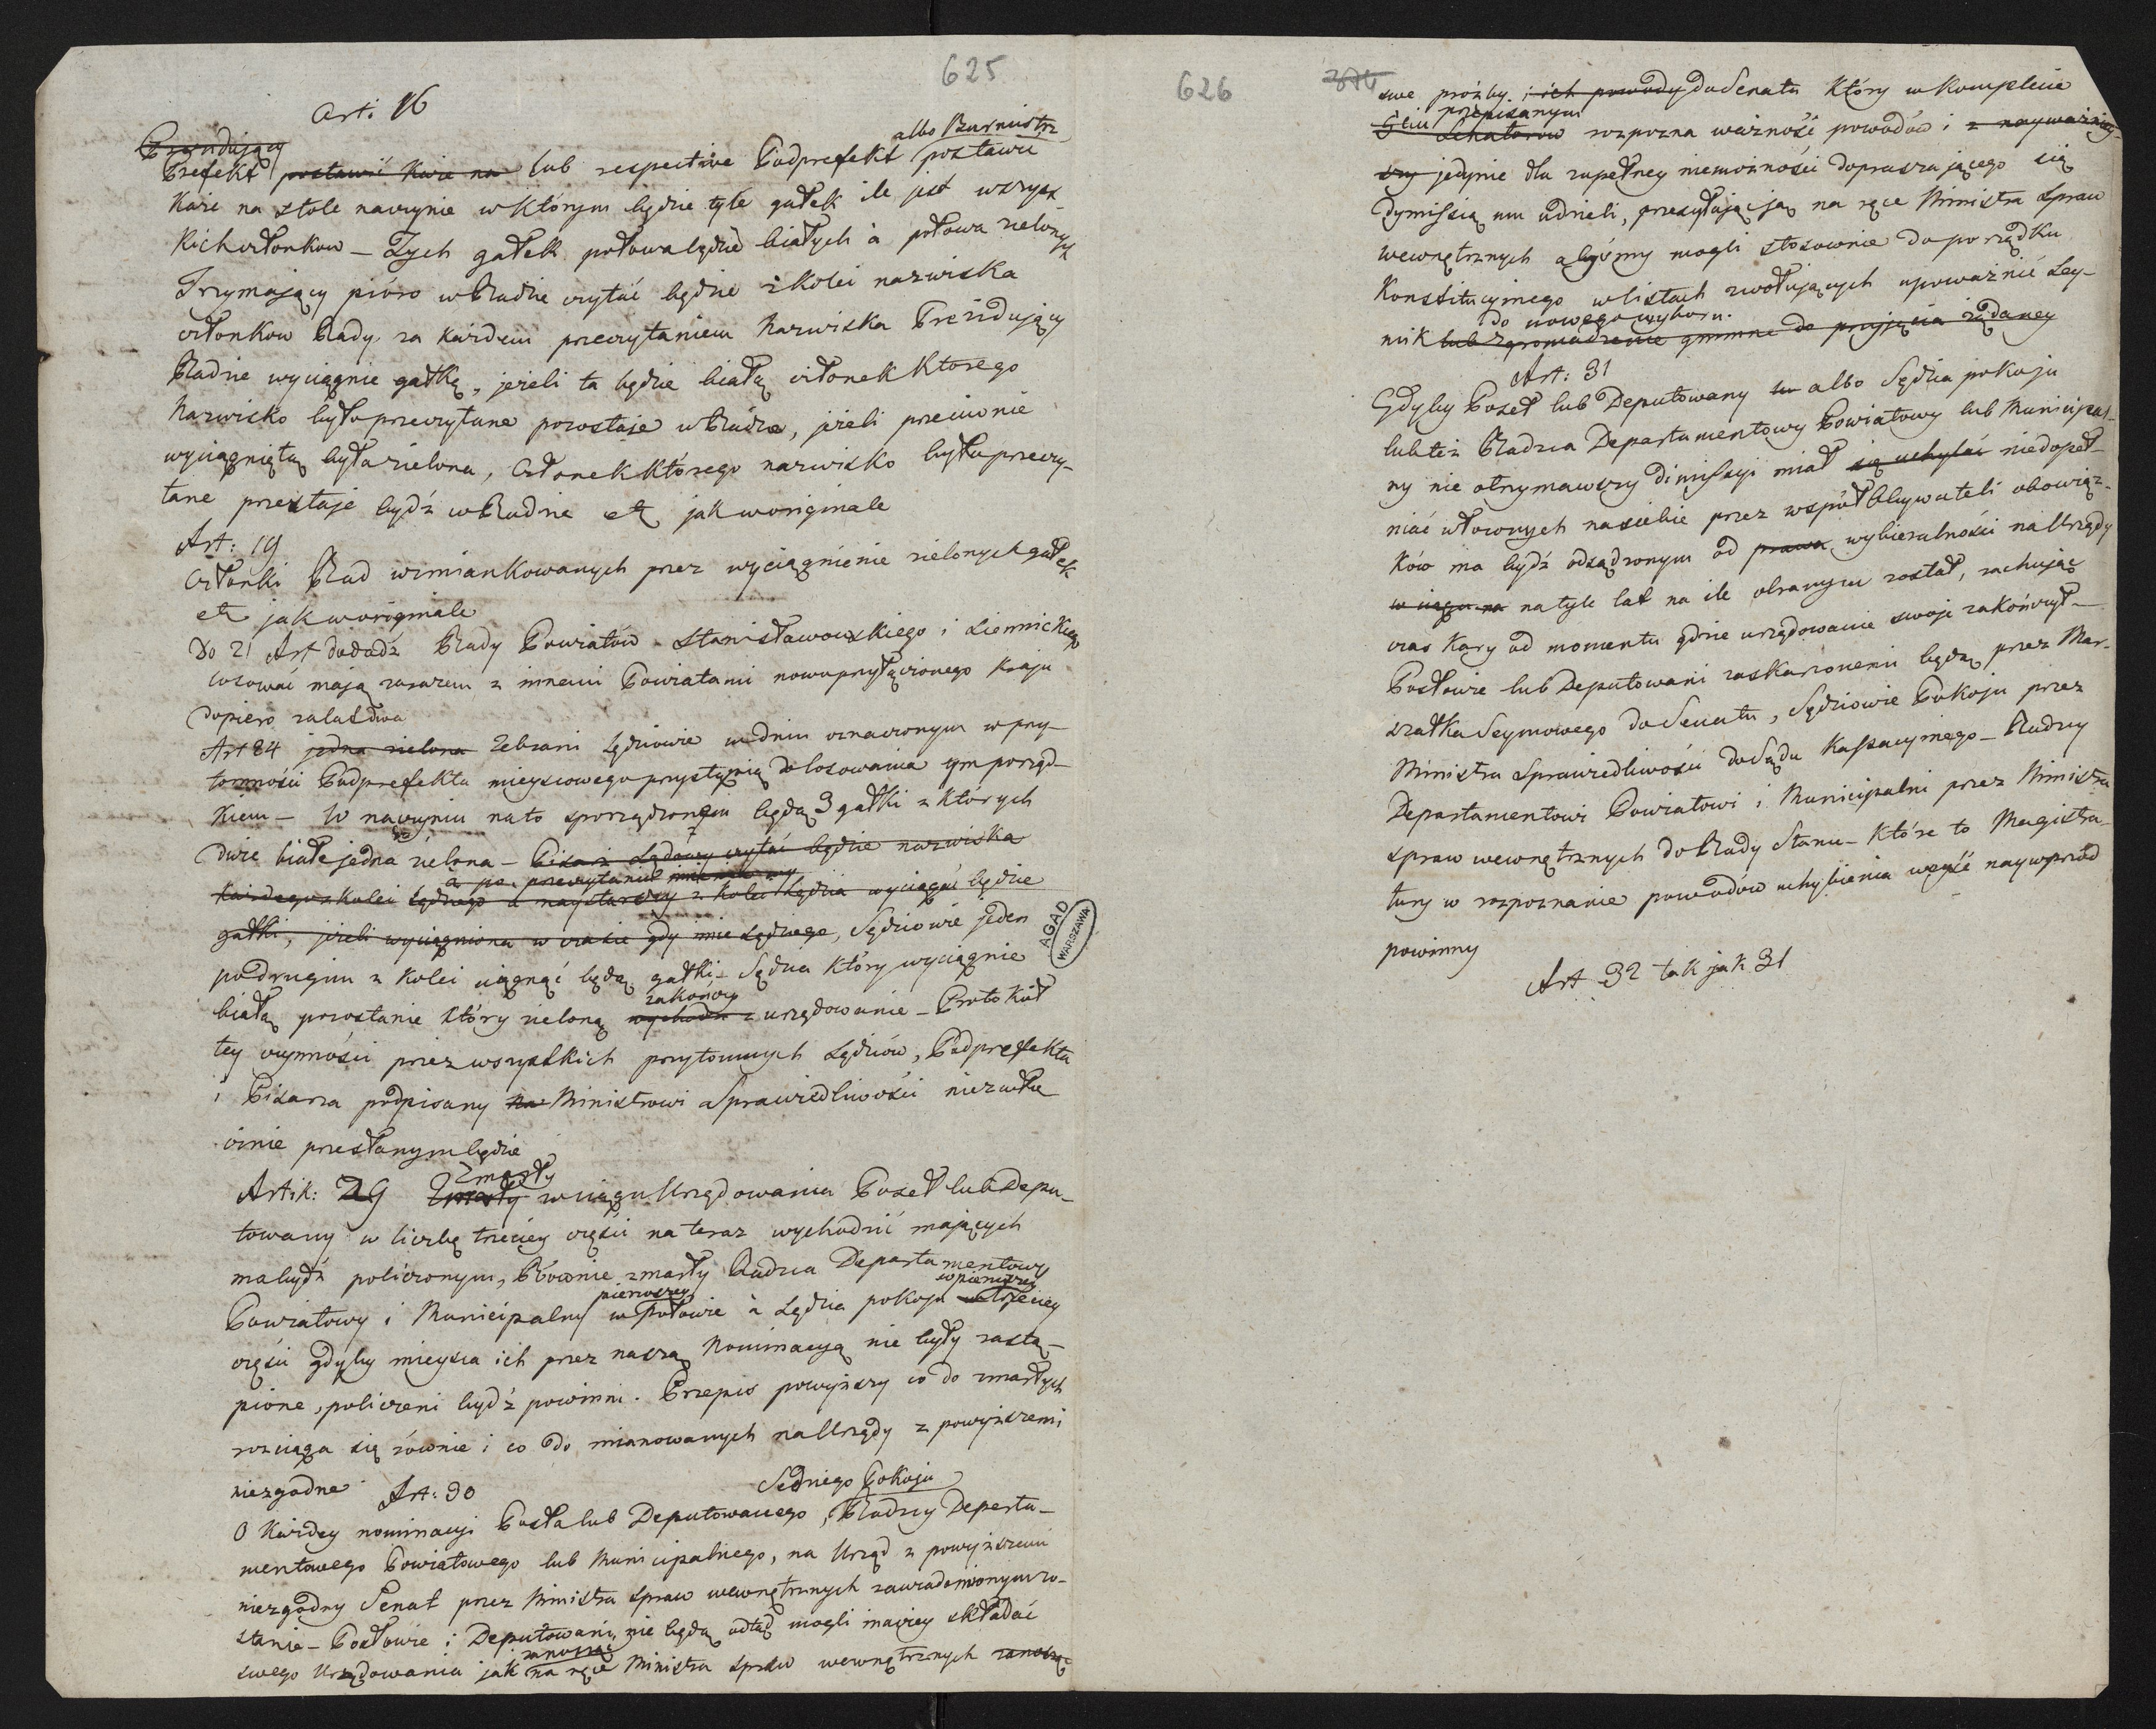 625
Art: 16
Prezydujący
albo Burmistrz
Prefekt postawić każe na lub respective Podprefekt postawić
każe na stole naczynie w którym będzie tyle gałek ile jest wszyst
kich członkow – Tych gałek połowa będzie białych à połowa zielonych
Trzymający pióro w Radzie czytać będzie z kolei nazwiska
członkow Rady, za każdem przeczytaniem Nazwiska Prezidujący
Radzie wyciągnie gałkę, jeżeli ta będzie białą członek ktorego
Nazwisko było przeczytane pozostaje w Radzie, jeżeli przeciwnie
wyciągniętą była zielona, Członek którego nazwisko było przeczy-
tane przestaje bydź w Radzie etc jak w originale
Art: 19
Członki Rad wzmiankowanych przez wyciągnienie zielonych gałek
etc jak w originale
Do 21 Art dodadź Rady Powiatów Stanisławowskiego i Siennickiego
losować mają zarazem z innemi Powiatami nowoprzyłączonego kraju
dopiero zalat dwa
Art 24 jedna zielona Zebrani Sędziowie w dniu oznaczonym w przy-
tomności Podprefekta mieyscowego przystąpią do losowania tym porząd-
kiem – W naczyniu na to sporządzonem będą 3 gałki z których
dwie białe jedna zielona – Pisarz Sądowy czytać będzie nazwiska
à po przeczytaniu
każdego z kolei Sędziego a naystarszy z kolei Sędzia wyciągać będzie
gałki, jeżeli wyciągniona w czasie gdy imie Sędziego, Sędziowie jeden
po drugim z kolei ciągnąć będą gałki – Sędzia który wyciągnie
zakończy
białą pozostanie który zieloną wychodzi z urzędowanie – Protokół
tey czynności przez wszystkich przytomnych Sędziów, Podprefekta
i Pisarza podpisany na Ministrowi Sprawiedliwości niezwło
cznie przesłanym będzie
Zmarły
Artik: 29 Zmarły w ciągu Urzędowania Poseł lub Depu-
towany w liczbę trzeciey części na teraz wychodzić mających
ma bydź policzonym, Równie zmarły Radzca Departamentowy
pierwszey
w pierwszey
Powiatowy i Municipalny w połowie à Sędzia pokoju w trzeciey
części gdyby mieysca ich przez naszą Nominacyą nie były zastą-
pione, policzeni bydź powinni. Przepis powyższy co do zmarłych
rozciąga się równie i co do mianowanych na Urzędy z powyższemi
niezgodne
Art: 30
Sędziego Pokoju
O każdey nominacyi Posła lub Deputowanego, Radzcy Departa-
mentowego Powiatowego lub Municipalnego, na Urząd z powyższemi
niezgodny Senat przez Ministra Spraw wewnętrznych zawiadomionym zo-
stanie – Posłowie i Deputowani nie będą odtąd mogli inaczey składać
zanosząc
swego Urzędowania jak na ręce Ministra Spraw wewnętrznych zanosząc
AGAD
WARSZAWA
626
swe prośby i ich powody do Senatu który w komplecie
przepisanym
Senatorow rozpozna ważność powodów i z nayważniey-
szy jedynie dla zupełney niemożności dopraszającego się
Dymissią mu udzieli, przesyłając ją na ręce Ministra Spraw
wewnętrznych abyśmy mogli stosownie do porządku
Konstitucyinego w listach zwołujących upoważnić Sey-
do nowego wyboru.
mik lub zgromadzenie gminne do przyjęcia żądaney
Art: 31
Gdyby Poseł lub Deputowany lu albo Sędzia pokoju
lub też Radzca Departamentowy Powiatowy lub Municipal-
ny nie otrzymawszy dimissyi miał się uchylać niedopeł-
niać włożonych na siebie przez współObywateli obowiąz-
ków ma bydź odsądzonym od prawa wybieralności na Urzędy
w ciągu na na tyle lat na ile obranym został, rachując
czas kary od momentu gdzie urzędowanie swoje zakończył –
Posłowie lub Deputowani zaskarżonemi będą przez Mar-
szałka Seymowego do Senatu, Sędziowie Pokoju przez
Ministra Sprawiedliwości do Sądu Kassacyinego – Radzcy
Departamentowi Powiatowi i Municipalni przez Ministra
spraw wewnętrznych do Rady Stanu – Które to Magistra-
tury w rozpoznanie powodów uchybienia weyść naywprzód
powinny
Art 32 tak jak 31